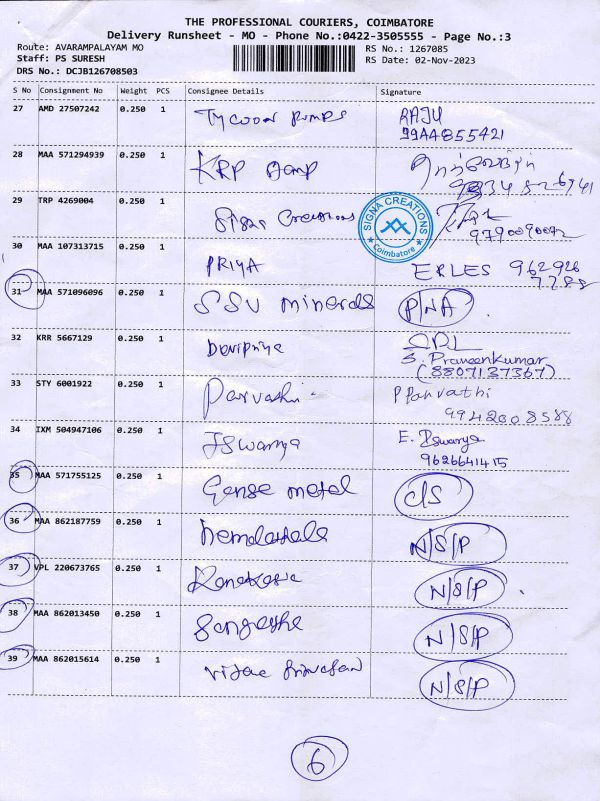 THE PROFESSIONAL COURIERS, COIMBATORE
Delivery Runsheet - MO - Phone No.:0422-3505555 - Page No.:3
Route: AVARAMPALAYAM MO
RS No.: 1267085
Staff: PS SURESH
RS Date: 02-Nov-2023
DRS No.: DCJB126708503
S No Consignment No Weight PCS Consignee Details Signature
27 AMD 27507242 0.250 1 Tycoon Pumps RAJU
9944855421
28 MAA 571294939 0.250 1 KRP
29 TRP 4269004 0.250 1 Creations
SIGNA CREATIONS
Coimbatore
9790090092
30 MAA 107313715 0.250 1 PRIYA ERLES 962926
7288
31 MAA 571096096 0.250 1 SSV minerals P/NA
32 KRR 5667129 0.250 1 Devipriya
S. Praveenkumar
(8807137367)
33 STY 6001922 0.250 1 Parvathi P Parvathi
9942008588
34 IXM 504947106 0.250 1 Iswarya E. Iswarya
9626641415
35 MAA 571755125 0.250 1 metal C/S
36 MAA 862187759 0.250 1 N/S/P
37 VPL 220673765 0.250 1 N/S/P
38 MAA 862013450 0.250 1 N/S/P
39 MAA 862015614 0.250 1 N/S/P
6